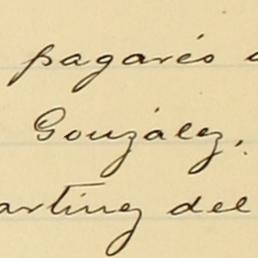 pagarés
González,
artinez del